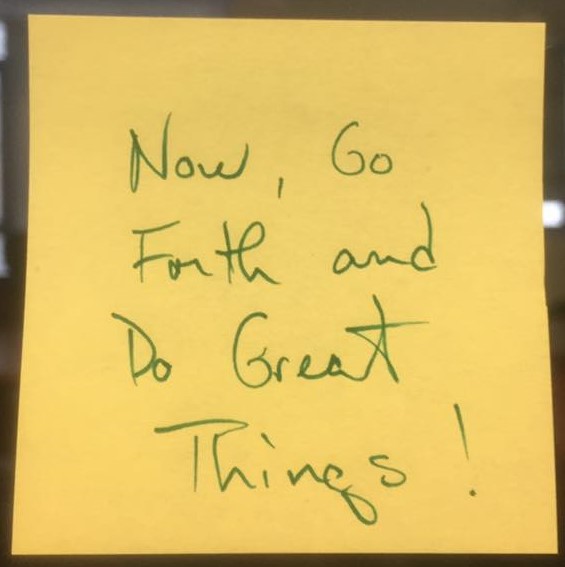 Now, Go
Forth and
Do Great
Things!